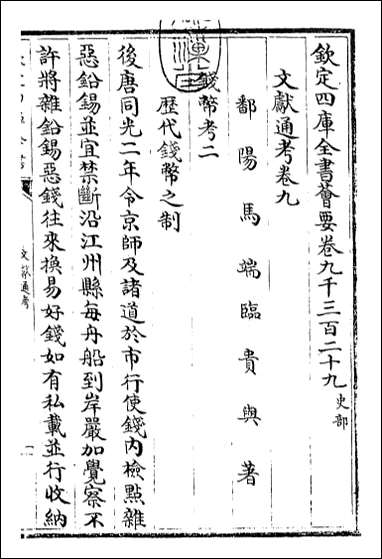 欽定四庫全書薈要卷九千三百二十九 史部
文獻通考卷九
鄱陽馬端臨貴與著
錢幣考二
歷代錢幣之制
後唐同光二年令京師及諸道於市行使錢内檢點雜
惡鉛錫並宜禁斷沿江州縣每舟船到岸嚴加覺察不
許將雜鉛錫惡錢往來換易好錢如有私載並行收納
文獻通考
一